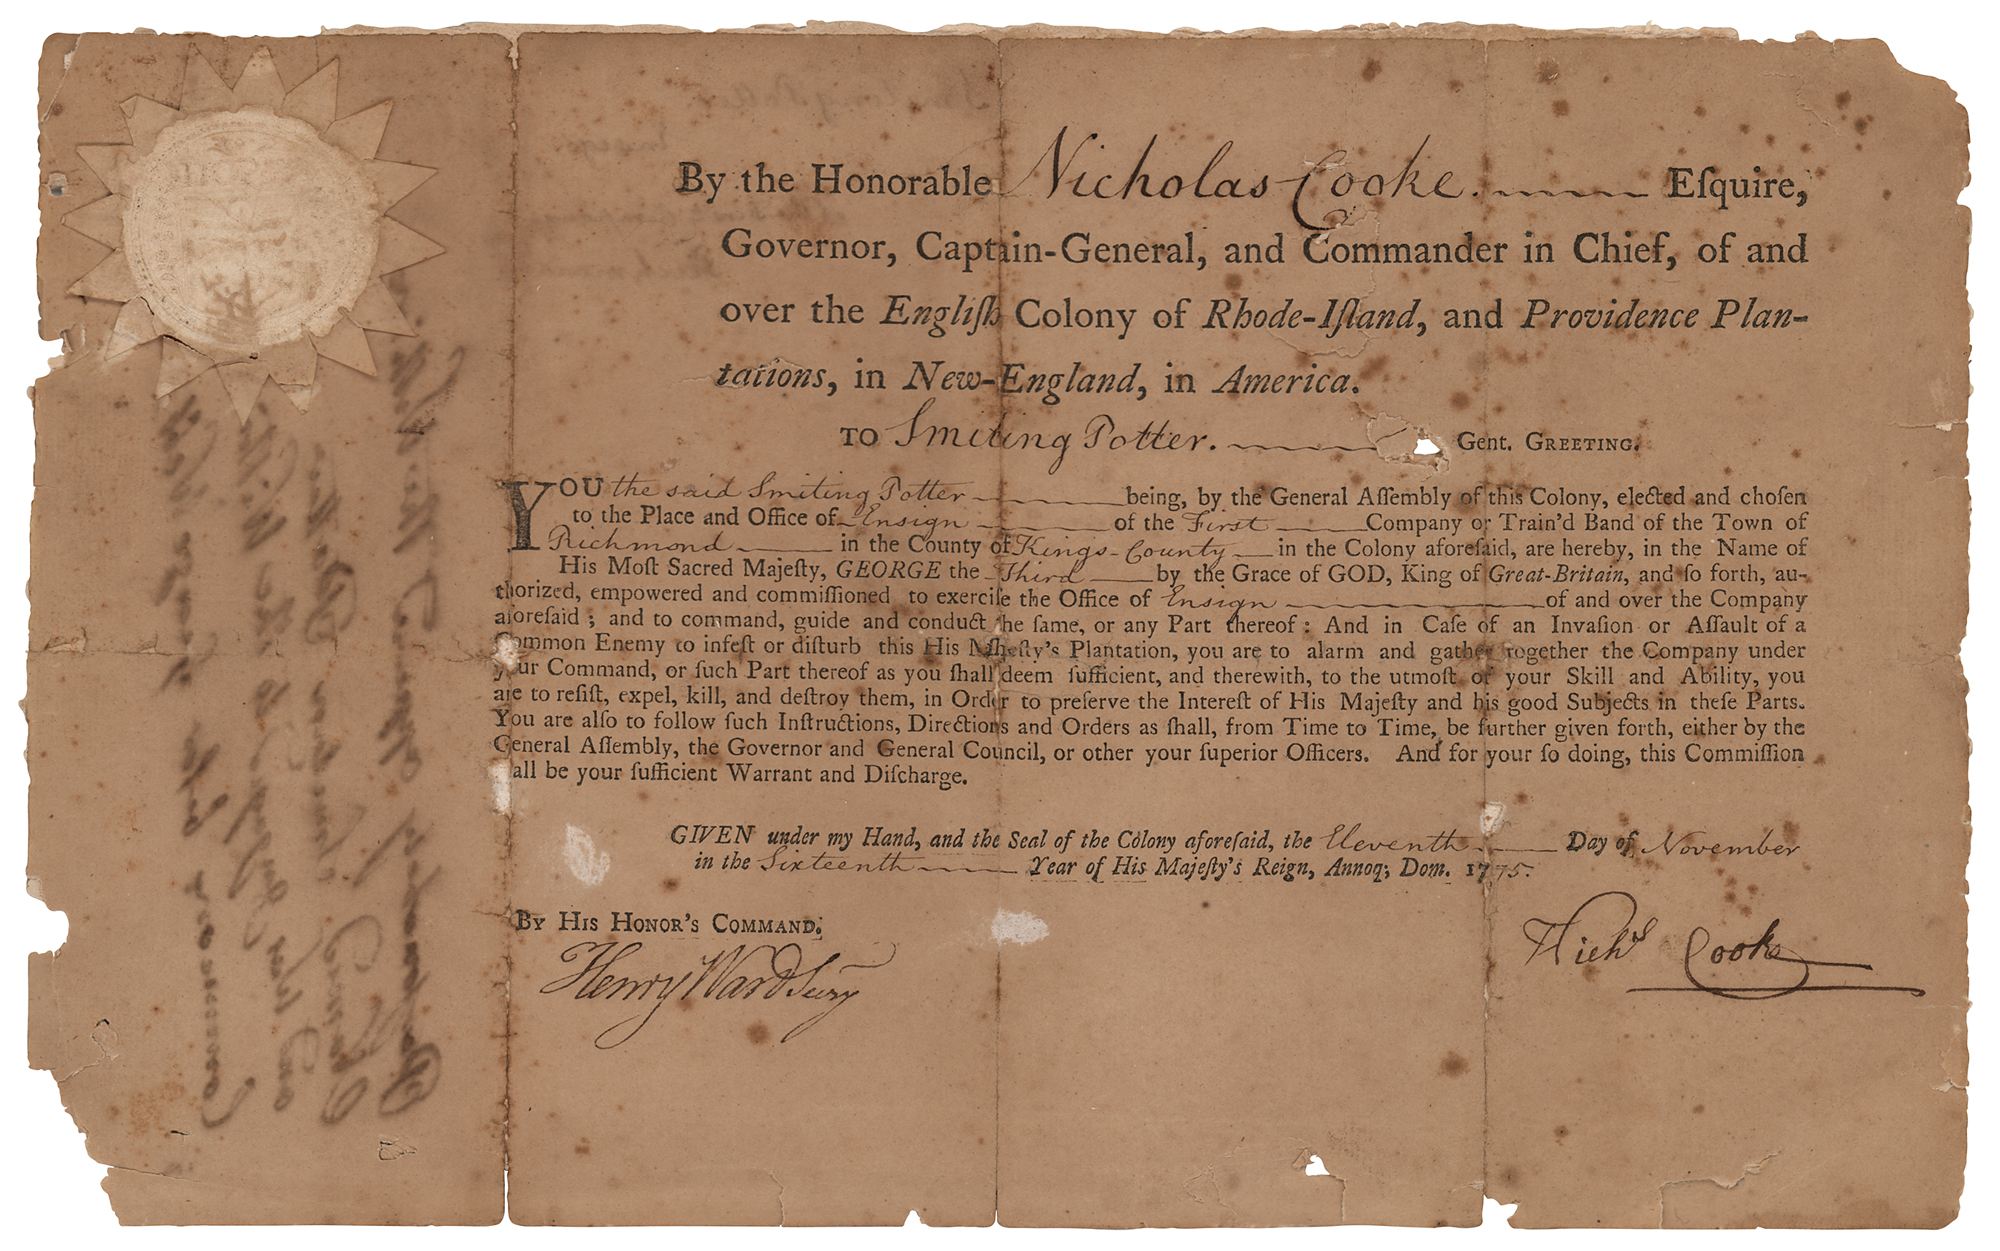 By the Honorable Nicholas Cooke. Eſquire,
Governor, Captain-General, and Commander in Chief, of and
over the Engliſh Colony of Rhode-Iſland, and Providence Plan-
tations, in New-England, in America.
TO Smiting Potter. Gent. GREETING.
YOU the said Smiting Potter being, by the General Aſſembly of this Colony, elected and choſen
to the Place and Office of Ensign of the First Company or Train'd Band of the Town of
Richmond in the County of Kings-County in the Colony aforeſaid, are hereby, in the Name of
His Moſt Sacred Majeſty, GEORGE the Third by the Grace of GOD, King of Great-Britain, and ſo forth, au-
thorized, empowered and commiſſioned to exerciſe the Office of Ensign of and over the Company
aforeſaid ; and to command, guide and conduct the ſame, or any Part thereof : And in Caſe of an Invaſion or Aſſault of a
Common Enemy to infeſt or diſturb this His Majeſty's Plantation, you are to alarm and gather together the Company under
your Command, or ſuch Part thereof as you ſhall deem ſufficient, and therewith, to the utmoſt of your Skill and Ability, you
are to reſiſt, expel, kill, and deſtroy them, in Order to preſerve the Intereſt of His Majeſty and his good Subjects in theſe Parts.
You are alſo to follow ſuch Inſtructions, Directions and Orders as ſhall, from Time to Time, be further given forth, either by the
General Aſſembly, the Governor and General Council, or other your ſuperior Officers. And for your ſo doing, this Commiſſion
ſhall be your ſufficient Warrant and Diſcharge.
GIVEN under my Hand, and the Seal of the Colony aforeſaid, the Eleventh Day of November
in the Sixteenth Year of His Majeſty's Reign, Annoq; Dom. 1775.
BY HIS HONOR'S COMMAND.
Henry Ward Secry
Nichs Cooke